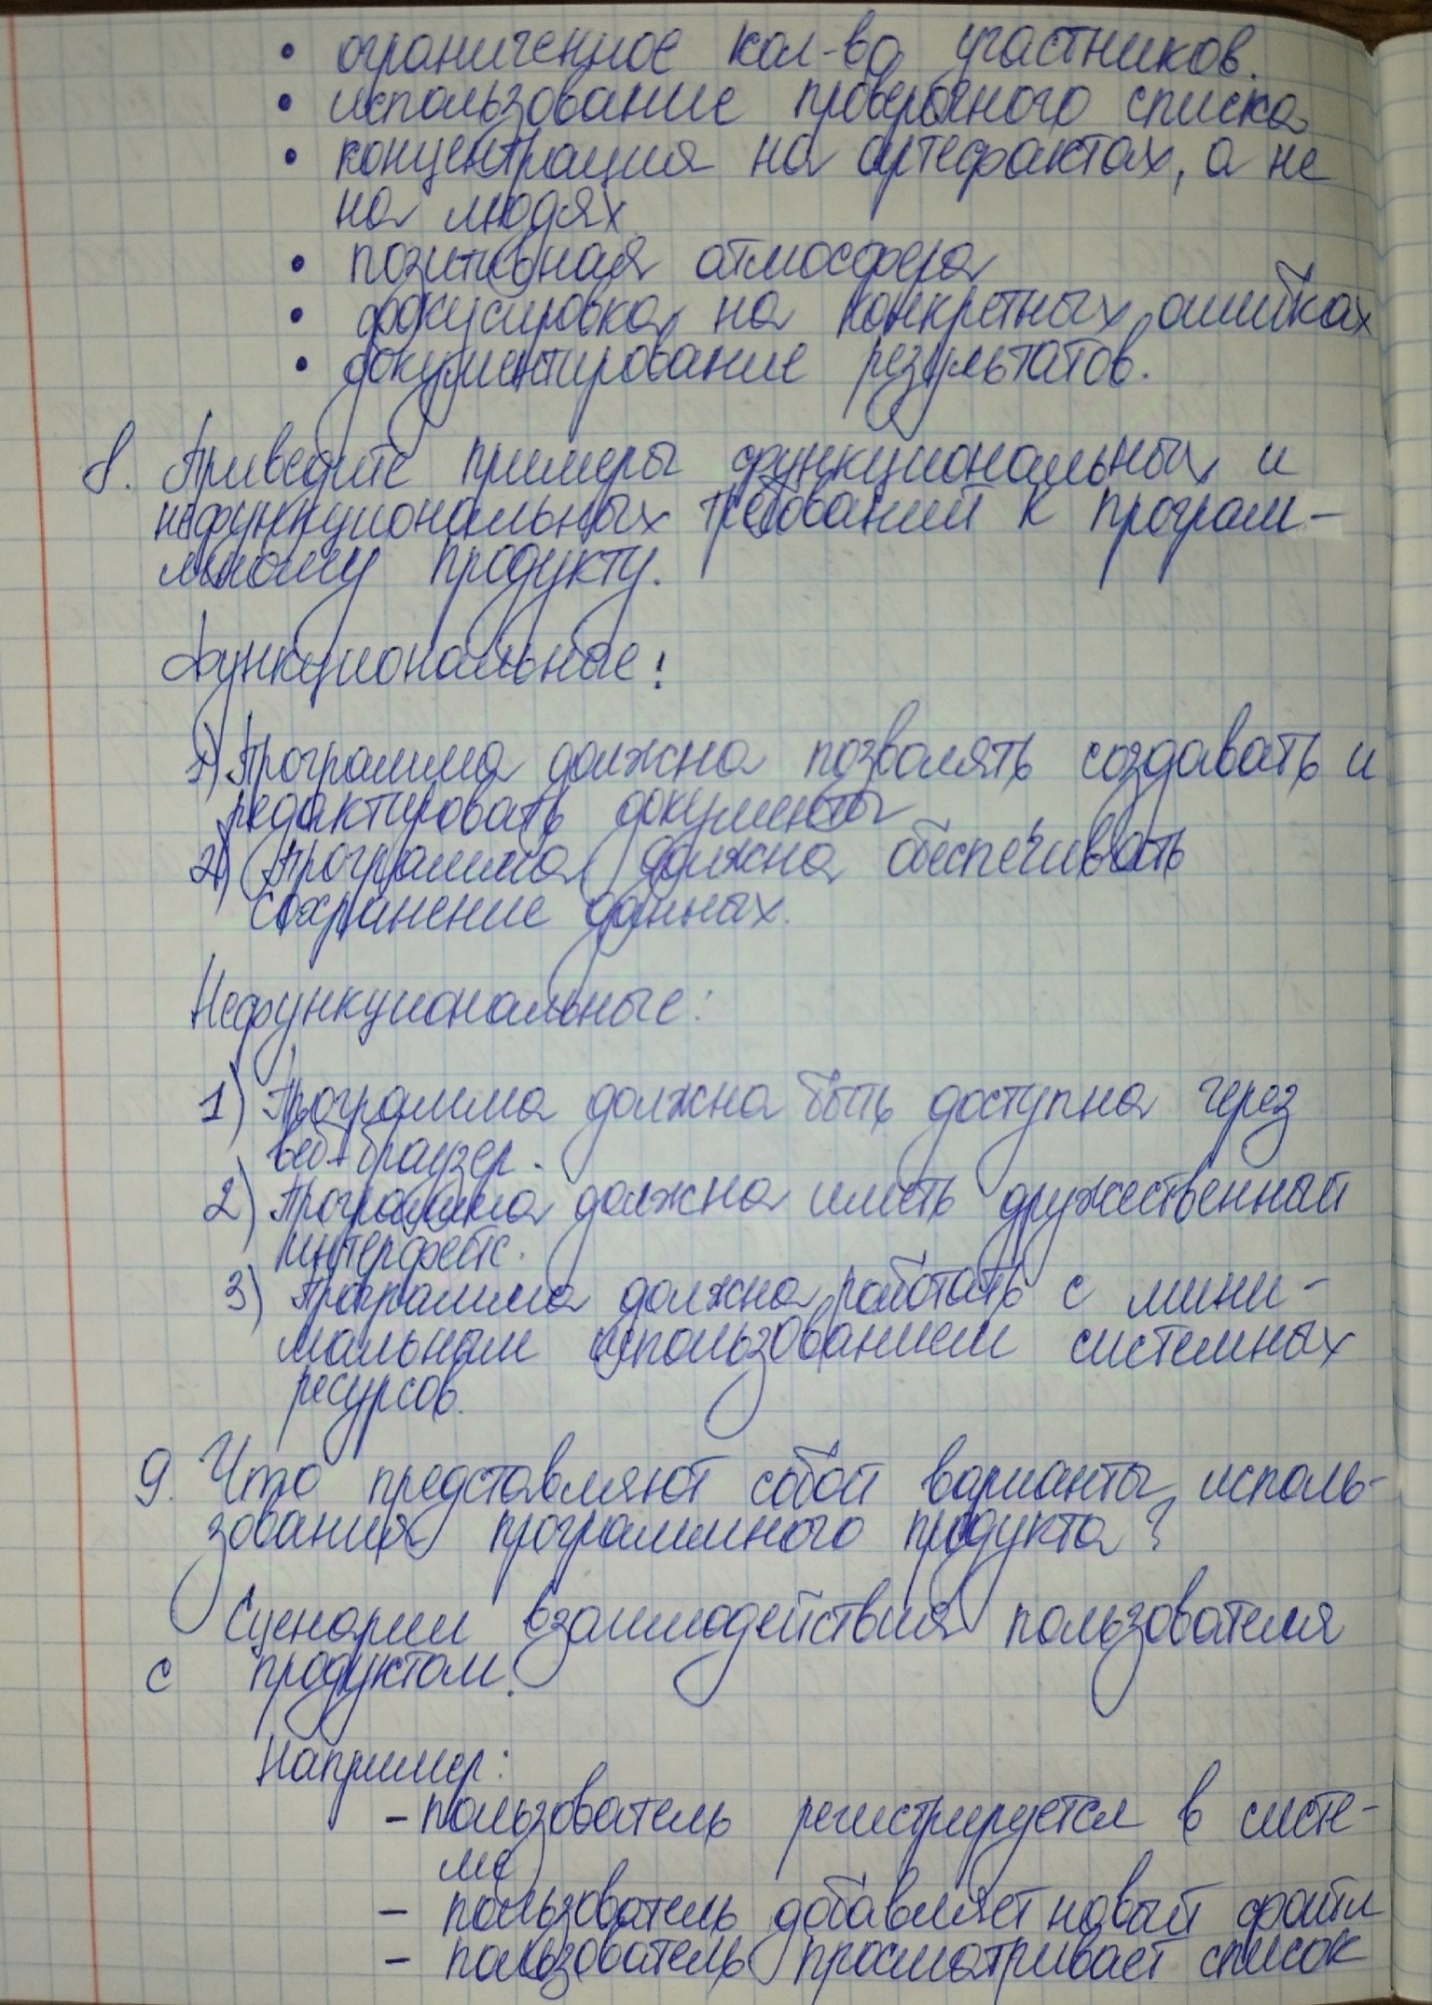 • ограниченное кол-во участников.
• использование проверочного списка
• концентрация на артефактах, а не
на людях
• позитивная атмосфера
• фокусировка на конкретных ошибках
• документирование результатов.
8. Приведите примеры функциональных и
нефункциональных требований к програм-
мному продукту.
Функциональные:
1) Программа должна позволять создавать и
редактировать документы
2) Программа должна обеспечивать
сохранение данных.
Нефункциональные:
1) Программа должна быть доступна через
веб-браузер.
2) Программа должна иметь дружественный
интерфейс.
3) Программа должна работать с мини-
мальным использованием системных
ресурсов.
9. Что представляют собой варианты исполь-
зования программного продукта?
Сценарии взаимодействия пользователя
с продуктом.
Например:
- пользователь регистрируется в систе-
ме
- пользователь добавляет новый файл
- пользователь просматривает список